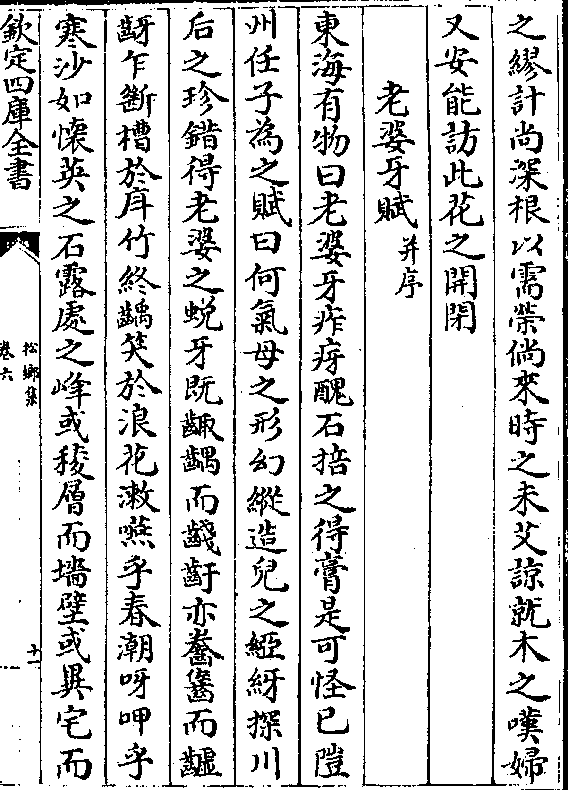 之繆計尚深根以需榮倘來時之未艾諒就木之嘆婦
又安能訪此花之開閉
老婆牙賦并序
東海有物曰老婆牙痄疨醜石掊之得膏是可怪已隑
州任子為之賦曰何氣母之形幻縱造兒之𦀇紓探川
后之珍錯得老婆之蛻牙既齱齵而齴齖亦齤𪙊而齇
齖乍斷槽於庤竹終齲笑於浪花漱嚥乎春潮呀呷乎
寒沙如懷英之石露處之峰或稜層而墻壁或異宅而
欽定四庫全書
松鄉集
卷六
十一